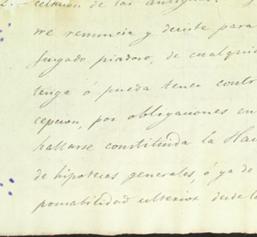 de las
me renuncia y desiste para
juzgado piadoso, de cualqui
tenga ó pueda tener contr
cepcion, por obligaciones en
hallarse constituida la Ha
de hipotecas generales ó ya de
ponsabilidad ulterior desde l